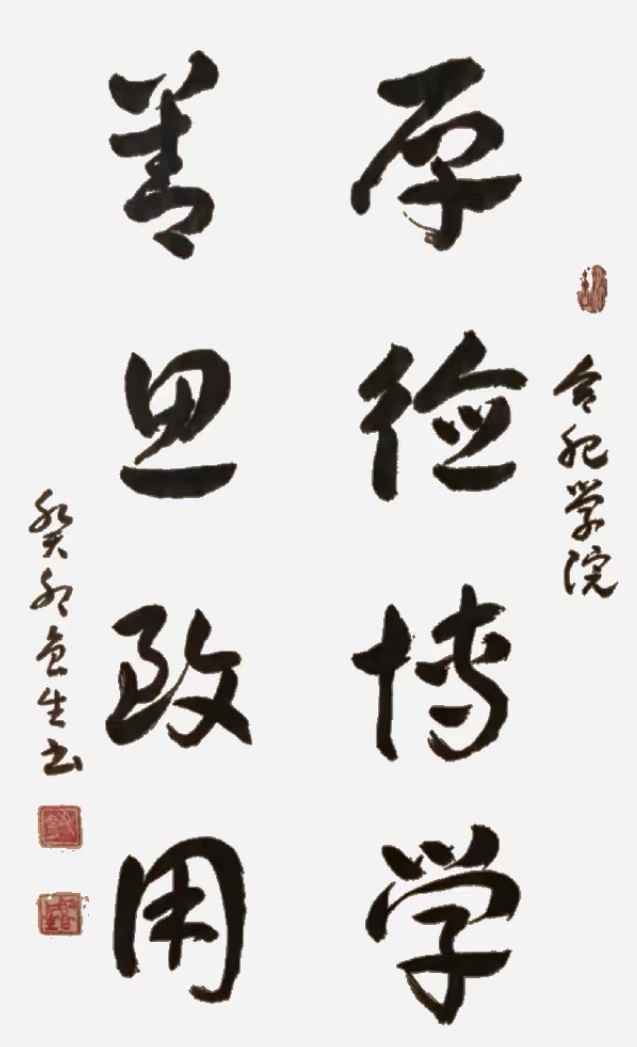 合肥学院
厚德博学
善思致用
癸卯食生书